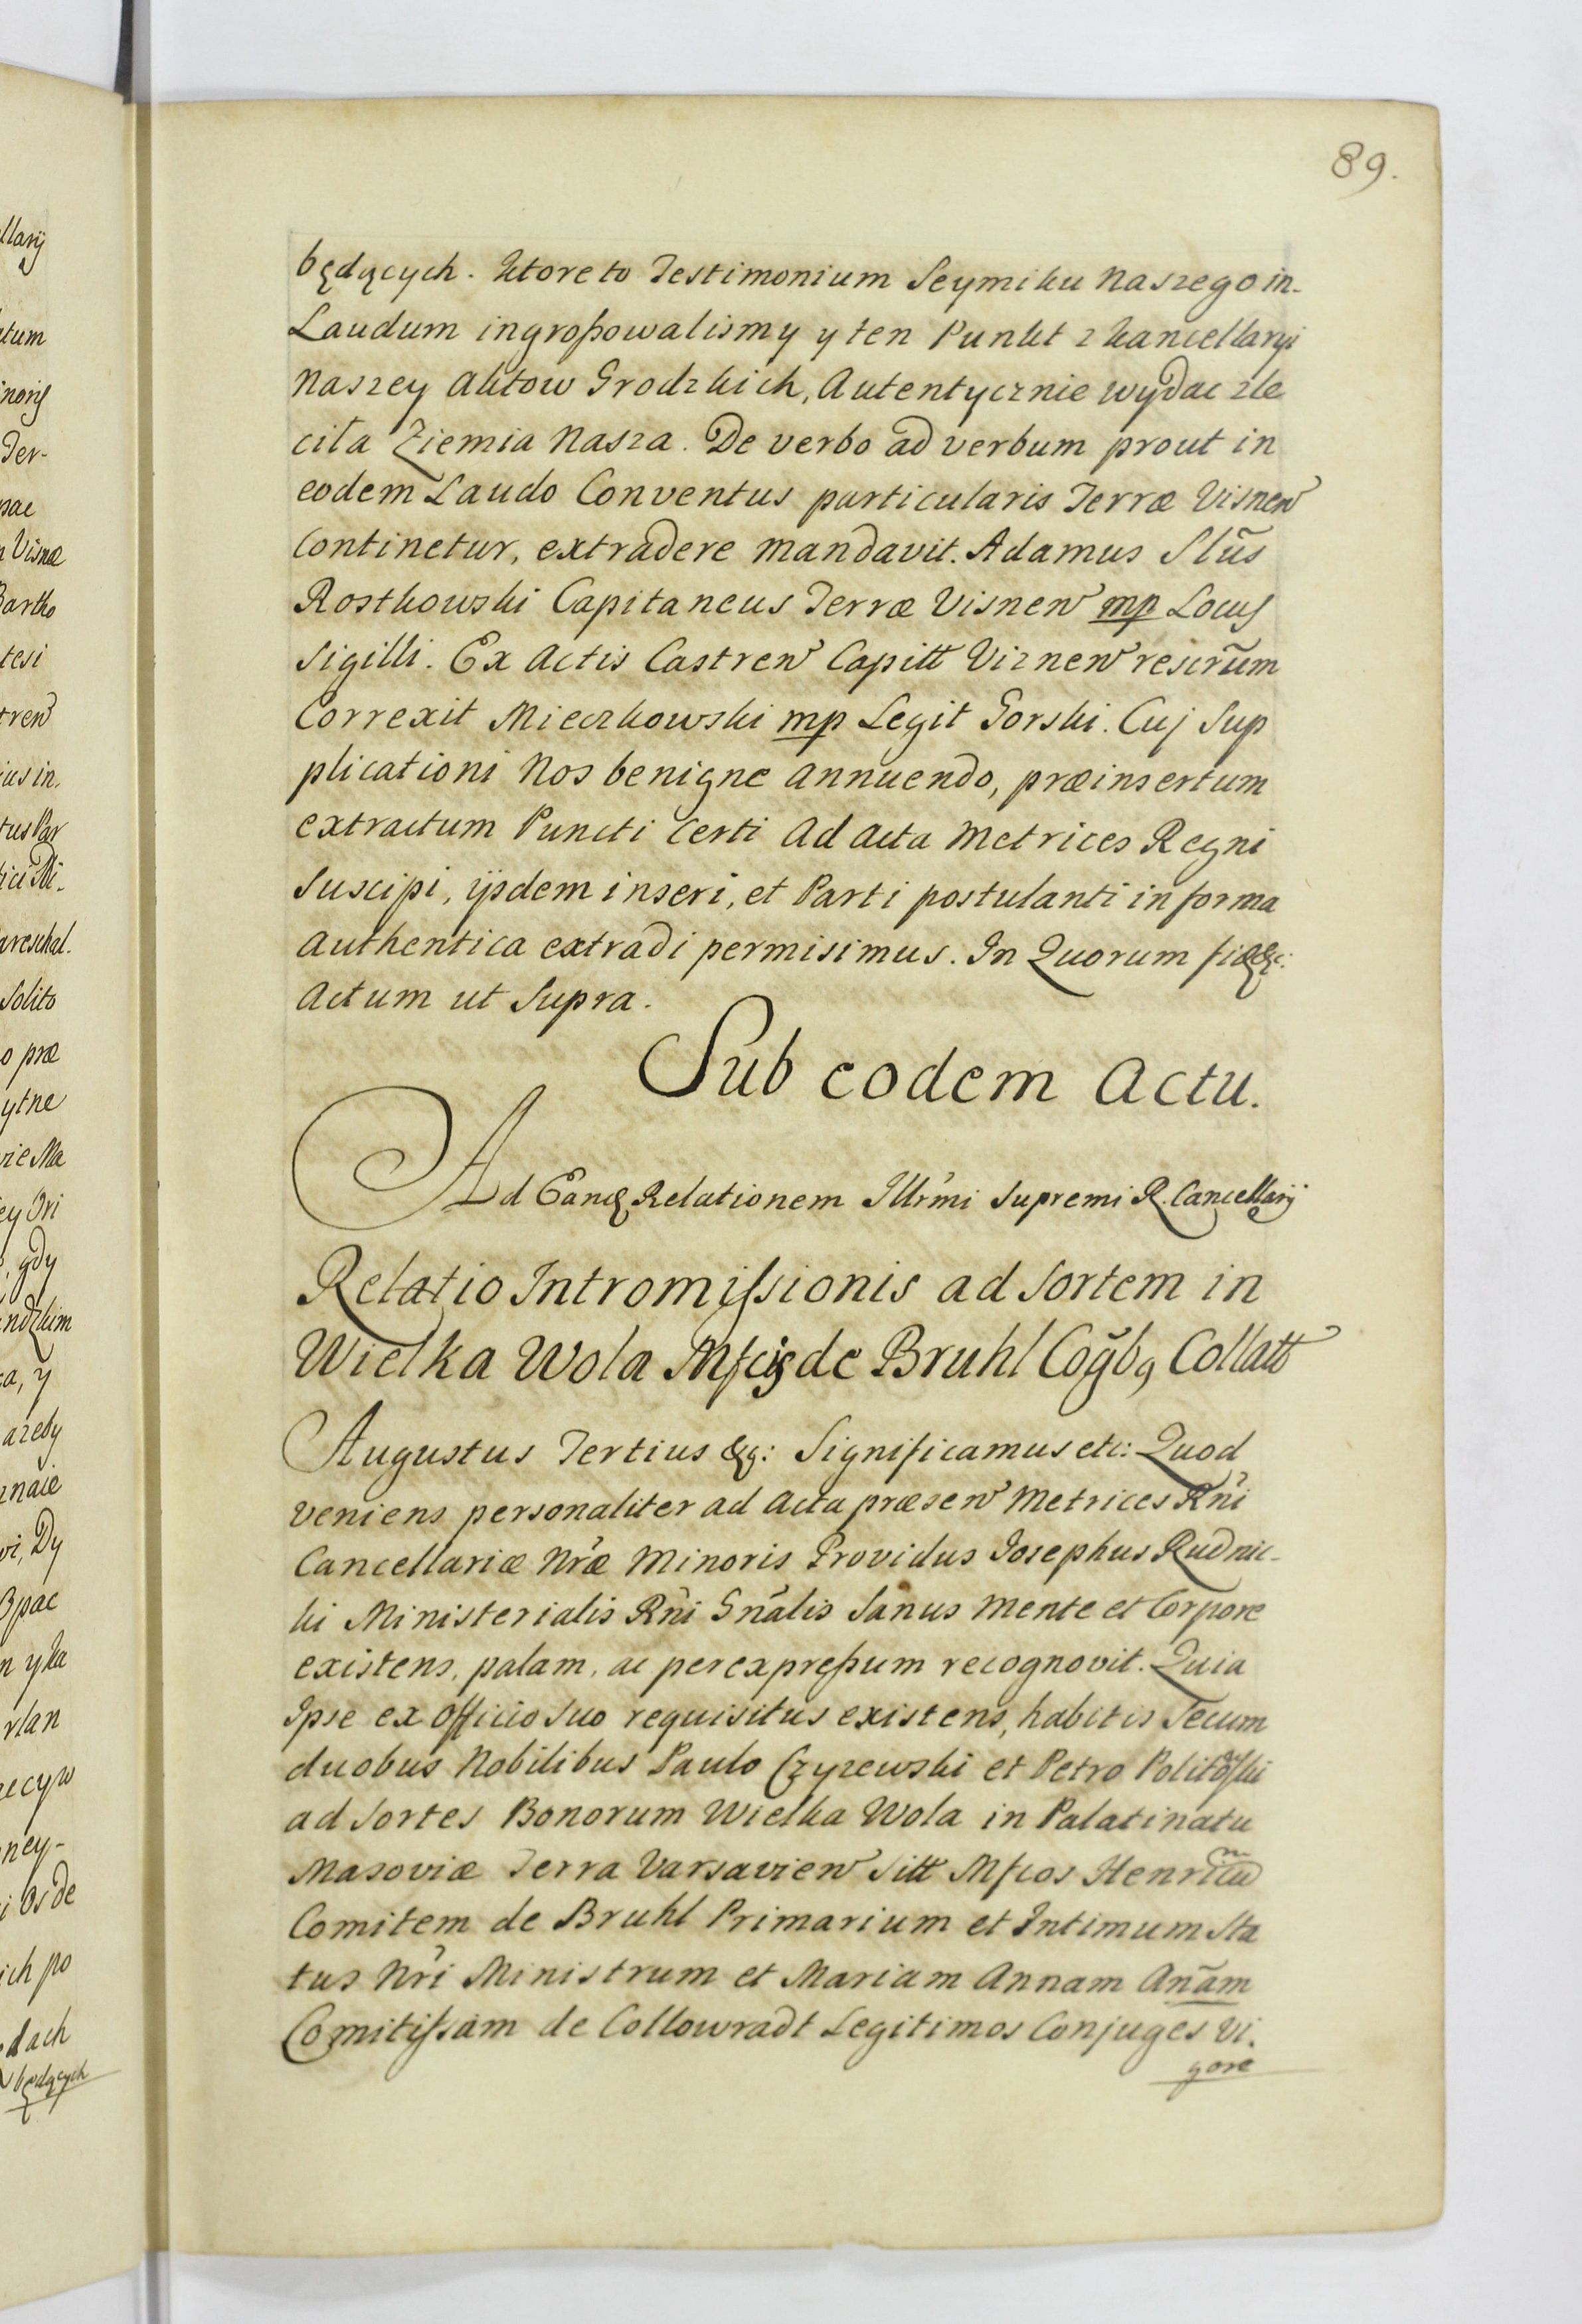 89.
będących. Ktore to Testimonium Seymiku Naszego in-
Laudum ingroßowalismy y ten Punkt z kancellaryi
Naszey Aktow Grodzkich, Autentycznie wydac zle
ciła Ziemia Nasza. De verbo ad verbum prout in
eodem Laudo Conventus particularis Terræ Visnen
Continetur, extradere Mandavit. Adamus Slũs
Rostkowski Capitaneus Terræ Visnen mp Locus
Sigilli. Ex Actis Castren Capitt Viznen rescrũm
Correxit Mieczkowski mp Legit Gorski. Cuj Sup
plicationi Nos benigne Annuendo, præinsertum
extractum Puncti Certi Ad Acta Metrices Regni
Suscipi, ijsdem inseri, et Parti postulanti in forma
Authentica extradi permisimus. In Quorum fid &c:
Actum ut Supra.
Sub eodem Actu.
Ad Eandq Relationem Illr̃mi Supremi R. Cancellarij
Relatio Intromissionis ad Sortem in
Wielka Wola Mfcis de Bruhl Cogb9 Collatt
Augustus Tertius &c: Significamus etc: Quod
veniens personaliter ad Acta præsen Metrices Rñi
Cancellariæ Nræ Minoris Providus Josephus Rudnic-
ki Ministerialis Rñi Gnãlis Sanus Mente et Corpore
existens, palam, ac per expreßum recognovit. Quia
Ipse ex officio suo requisitus existens, habitis Secum
duobus Nobilibus Paulo Czyzewski et Petro
ad Sortes Bonorum Wielka Wola in Palatinatu
Masoviæ Terra Varsavien Sitt Mfcos Henricum
Comitem de Bruhl Primarium et Intimum Sta
tus Nrĩ Ministrum et Mariam Annam Anãm
Comitissam de Collowradt Legitimos Conjuges Vi.
gore
llarij
Ter-
Visnæ
Bartho
ius in.
tus Par
areschal.
Solito
o præ
gdy
będących